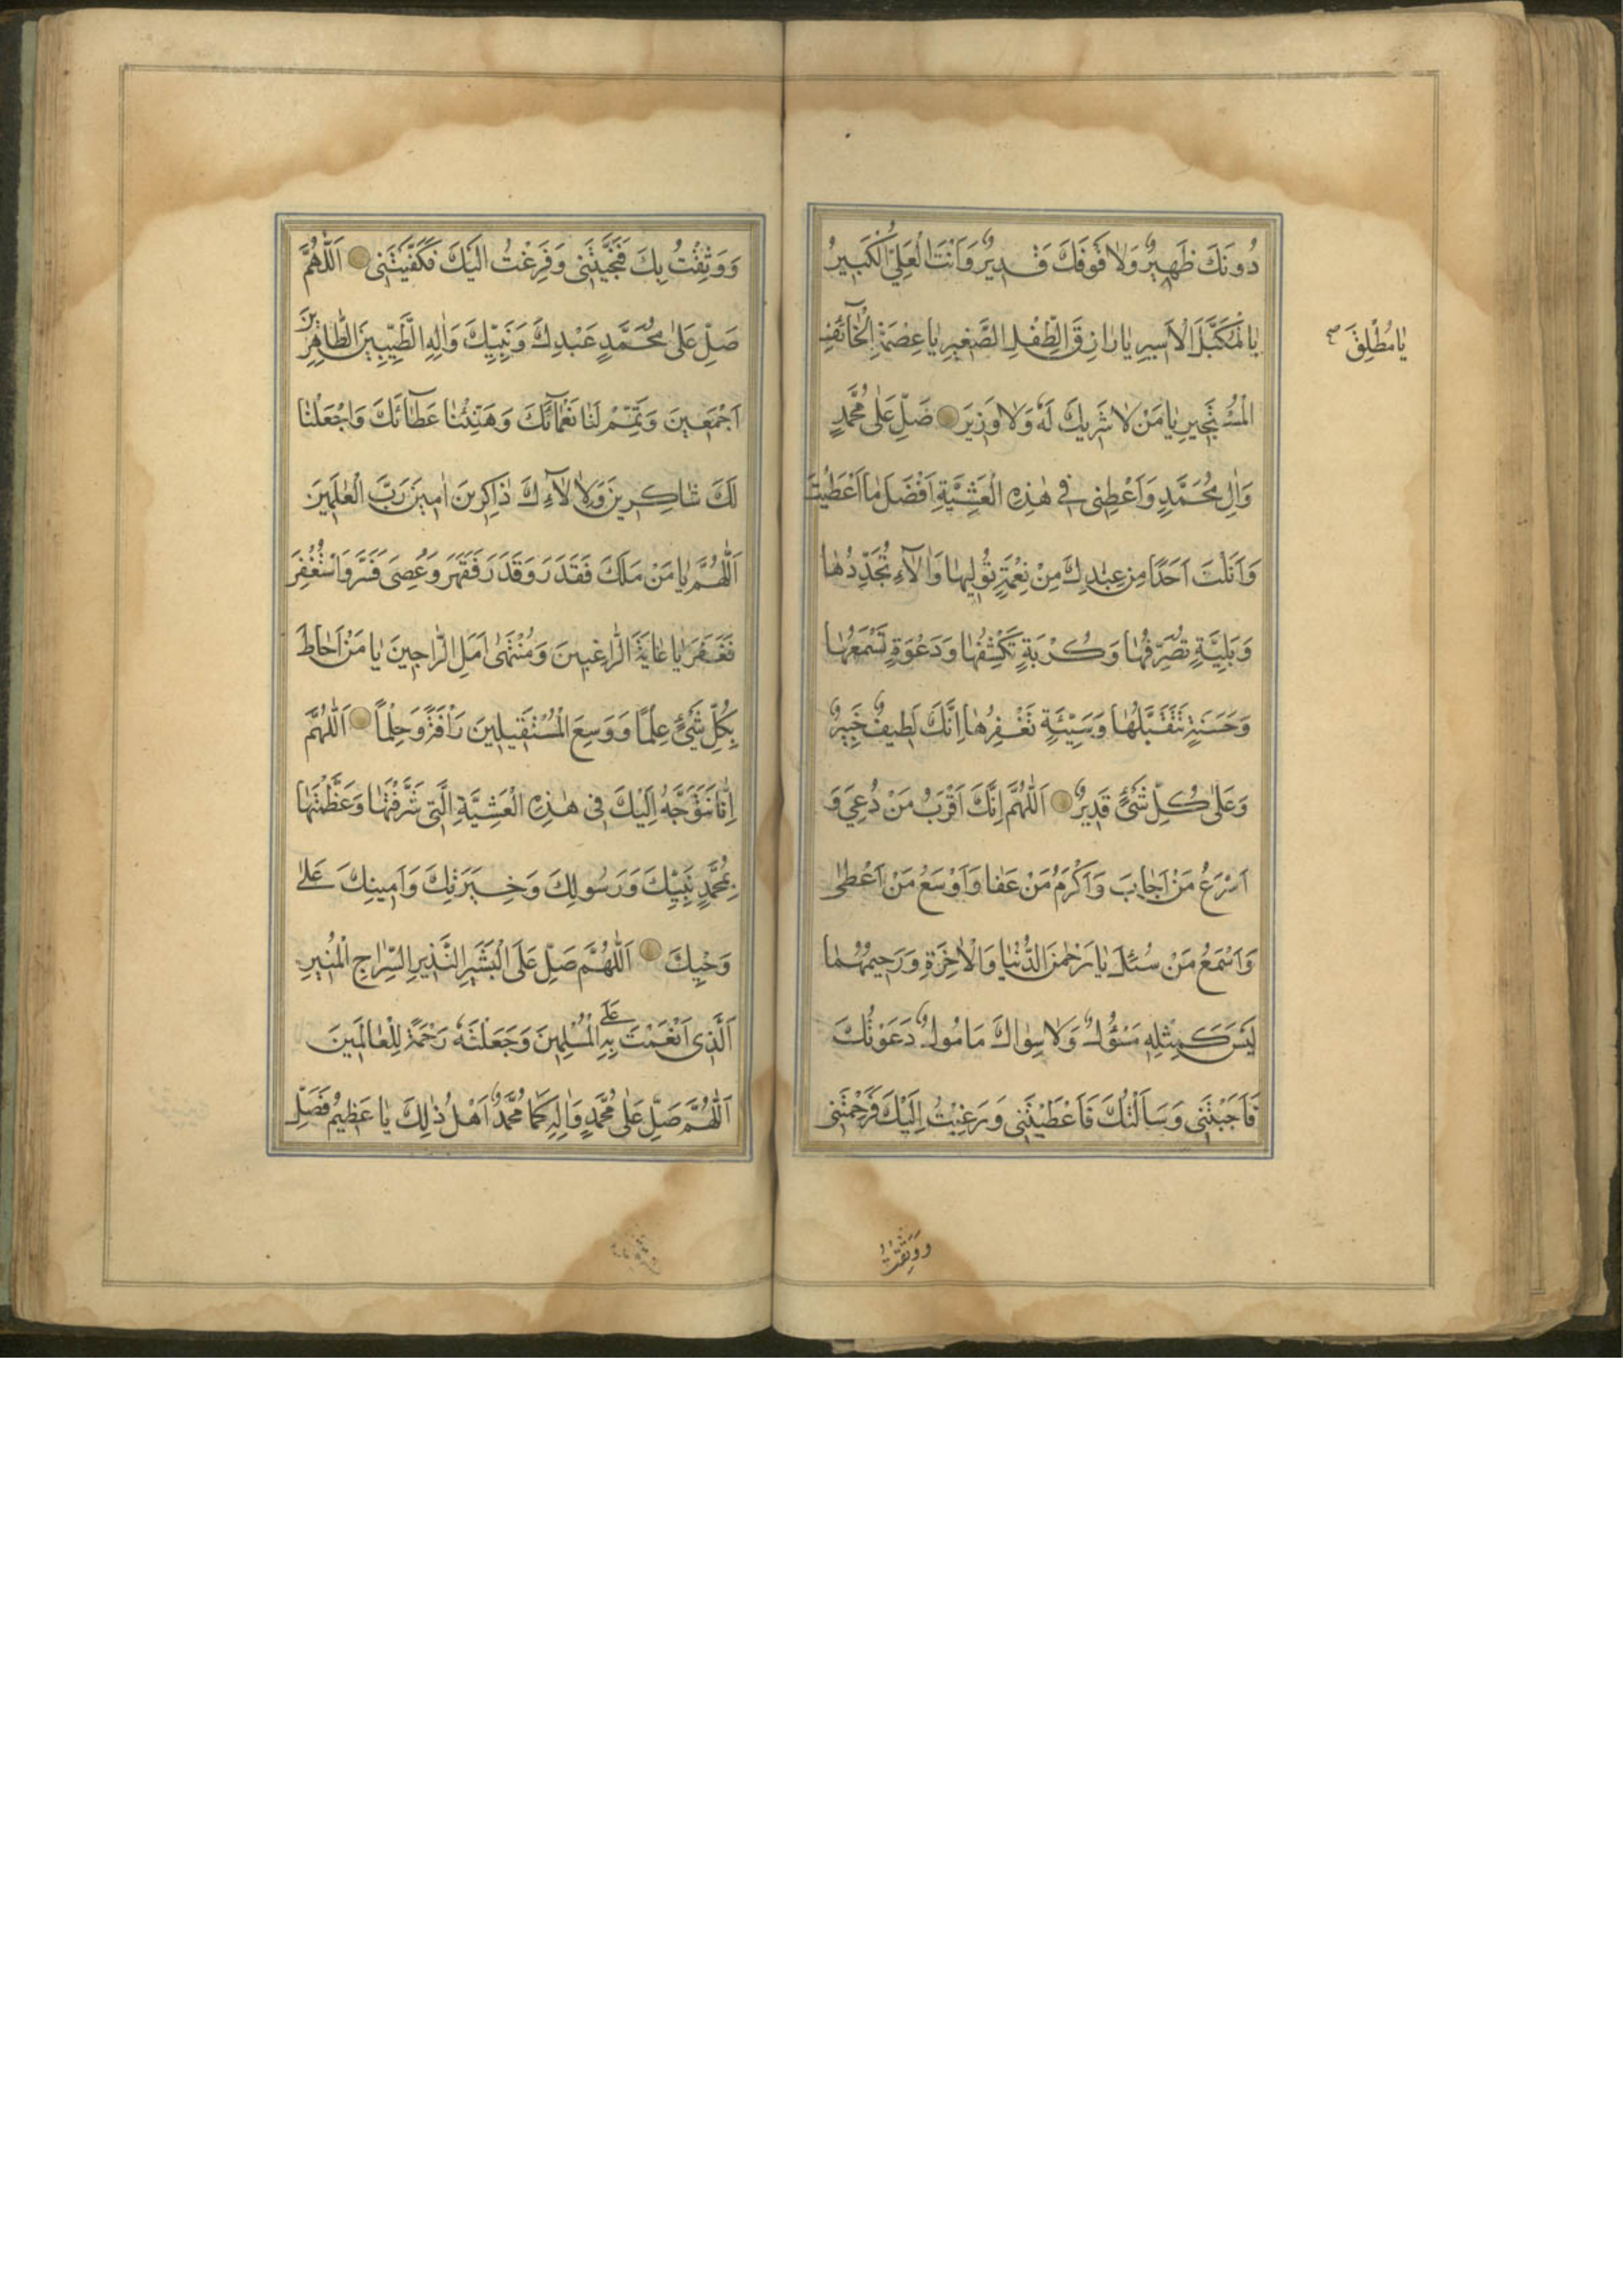 دُونَكَ ظَهِيرٌ وَلَا فَوقَكَ قَدِيرٌ وَاَنْتَ الْعَلِيُّ الْكَبِيرُ
يَا الْمُكَبَّلَ الْاَسِيرِ يَا رَازِقَ الطِّفْلِ الصَّغِيرِ يَا عِصْمَةَ الْخَآئِفِ
يَا مُطْلِقَ صح
الْمُسْتَجِيرِ يَا مَنْ لَا شَرِيكَ لَهُ وَلَا وَزِيرَ صَلِّ عَلٰى مُحَمَّدٍ
وَاٰلِ مُحَمَّدٍ وَاَعْطِنِى فِى هٰذِهِ الْعَشِيَّةِ اَفْضَلَ مَا اَعْطَيْتَ
وَاَنَلْتَ اَحَدًا مِن عِبَادِكَ مِنْ نِعْمَةٍ تُولِيهَا وَاٰلَاۤءٍ تُجَدِّدُهَا
وَبَلِيَّةٍ تُصَرِّفُهَا وَكُرْبَةٍ تَكْشِفُهَا وَدَعْوَةٍ تَسْمَعُهَا
وَحَسَنَةٍ تَتَقَبَّلُهَا وَسَيِّئَةٍ تَغْفِرُهَا اِنَّكَ لَطِيفٌ خَبِيرٌ
وَعَلٰى كُلِّ شَىْءٍ قَدِيرٌ اَللّٰهُمَّ اِنَّكَ اَقْرَبُ مَنْ دُعِيَ وَ
اَسْرَعُ مَنْ اَجَابَ وَاَكْرَمُ مَنْ عَفَا وَاَوْسَعُ مَنْ اَعْطٰى
وَاَسْمَعُ مَنْ سُئِلَ يَا رَحْمٰنَ الدُّنْيَا وَالْاٰخِرَةِ وَرَحِيمَهُمَا
لَيْسَ كَمِثْلِهِ مَسْؤُلٌ وَلَا سِوَاكَ مَامُولٌ دَعَوْتُكَ
فَاَجَبْتَنِى وَسَاَلْتُكَ فَاَعْطَيْتَنِى وَرَغِبْتُ اِلَيْكَ فَرَحِمْتَنِى
وَوَثِقْتُ
وَوَثِقْتُ بِكَ فَنَجَّيْتَنِى وَفَزِعْتُ اِلَيْكَ فَكَفَيْتَنِى اَللّٰهُمَّ
صَلِّ عَلٰى مُحَمَّدٍ عَبْدِكَ وَنَبِيِّكَ وَاٰلِهِ الطَّيِّبِينَ الطَّاهِرِينَ
اَجْمَعِينَ وَتَمِّمْ لَنَا نَعْمَآئَكَ وَهَنِّئْنَا عَطَآئَكَ وَاجْعَلْنَا
لَكَ شَاكِرِينَ وَلِاٰلَاۤءِكَ ذَاكِرِينَ اٰمِينَ رَبَّ الْعٰلَمِينَ
اَللّٰهُمَّ يَا مَنْ مَلَكَ فَقَدَرَ وَقَدَرَ فَقَهَرَ وَعُصِىَ فَسَتَرَ وَاسْتُغْفِرَ
فَغَفَرَ يَا غَايَةَ الرَّاغِبِينَ وَمُنْتَهٰى اَمَلِ الرَّاجِينَ يَا مَنْ اَحَاطَ
بِكُلِّ شَىْءٍ عِلْمًا وَوَسِعَ الْمُسْتَقِيلِينَ رَأْفَةً وَحِلْمًا اَللّٰهُمَّ
اِنَّا نَتَوَجَّهُ اِلَيْكَ فِى هٰذِهِ الْعَشِيَّةِ الَّتِى شَرَّفْتَهَا وَعَظَّمْتَهَا
بِمُحَمَّدٍ نَبِيِّكَ وَرَسُولِكَ وَخِيَرَتِكَ وَاَمِينِكَ عَلٰى
وَحْيِكَ اَللّٰهُمَّ صَلِّ عَلَى الْبَشِيرِ النَّذِيرِ السِّرَاجِ الْمُنِيرِ
اَلَّذِى اَنْعَمْتَ بِهِ عَلَى الْمُسْلِمِينَ وَجَعَلْتَهُ رَحْمَةً لِلْعَالَمِينَ
اَللّٰهُمَّ صَلِّ عَلٰى مُحَمَّدٍ وَاٰلِهِ كَمَا مُحَمَّدٌ اَهْلُ ذٰلِكَ يَا عَظِيمُ فَصَلِّ